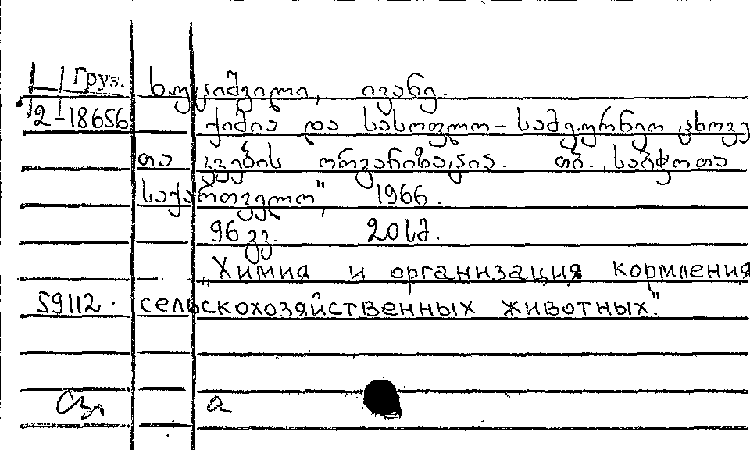 Груз. ხუციშვილი, ივანე.
2-18656 ქიმია და სასოფლო-სამეურნეო ცხოვე
თა კვების ორგანიზაცია. თბ. „საბჭოთა
საქართველო", 1966.
96 გვ. 20სმ.
„Химия и организация кормления
59112. сельскохозяйственных животных."
а